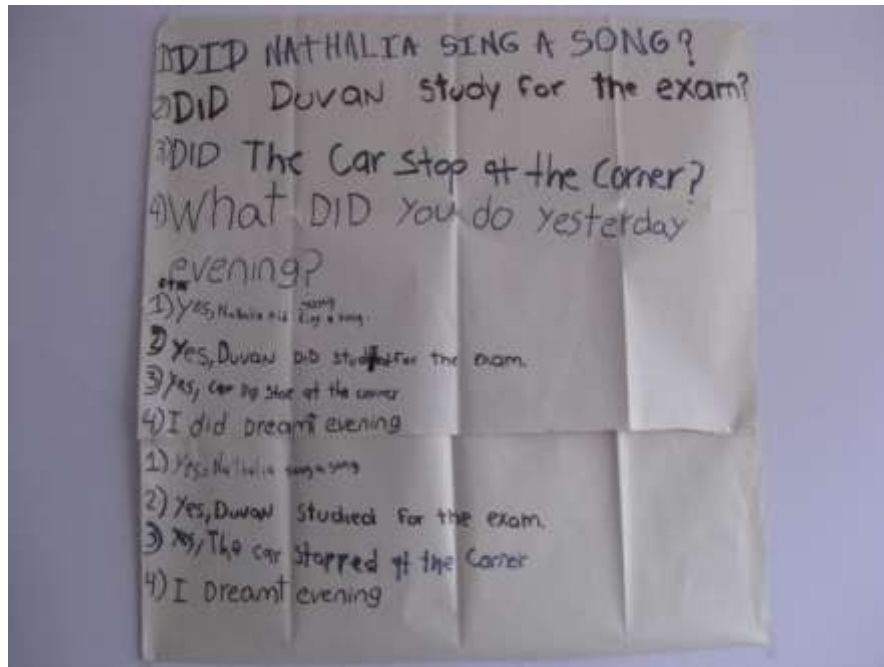 1) DID NATHALIA SING A SONG?
2) DID DUVAN study for the exam?
3) DID The Car Stop at the Corner?
4) What DID you do yesterday
evening?
1) Yes, Nathalia did sing a song.
2) Yes, Duvan DID for the exam.
3) Yes, car DID stop at the corner
4) I did Dreamt evening
1) Yes, Nathalia sang a song
2) Yes, Duvan Studied for the exam.
3) Yes, The car stopped at the Corner
4) I Dreamt evening